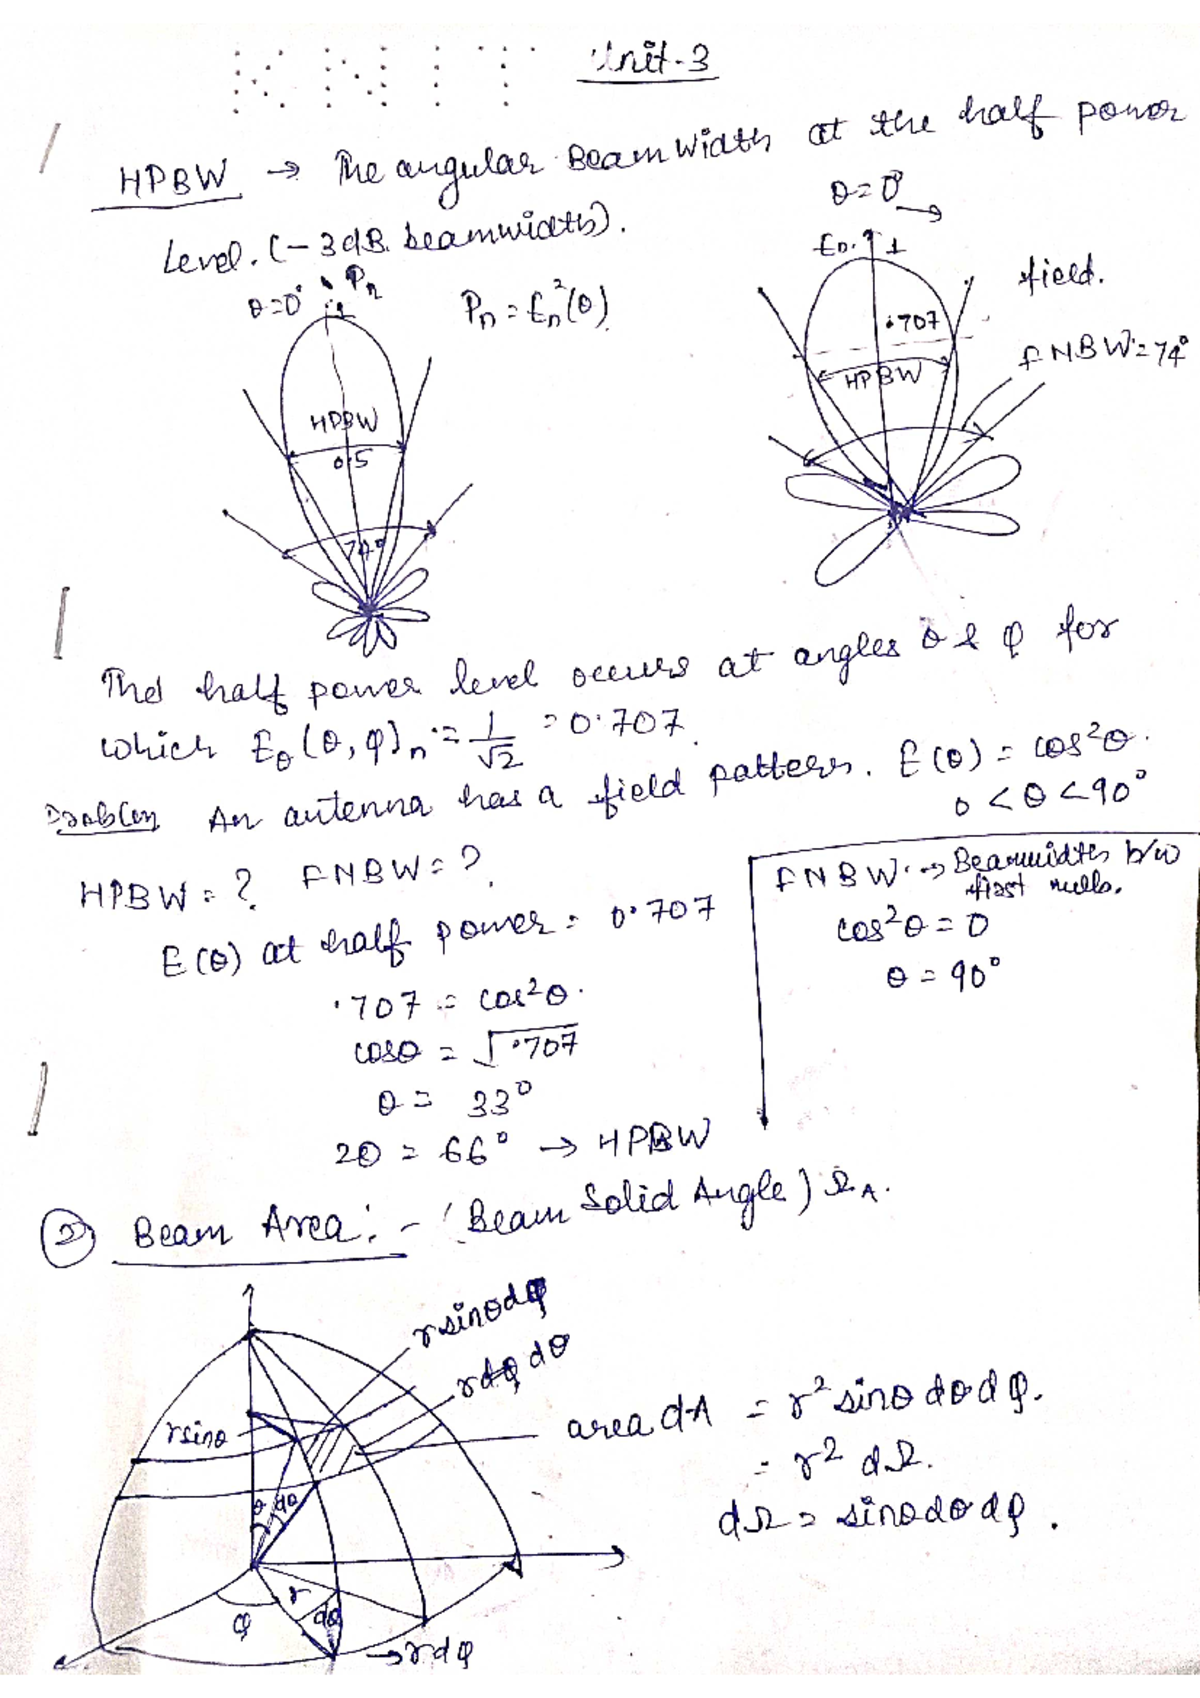 KNIT
Unit-3
HPBW → The angular Beamwidth at the half power
Level. (-3dB. beamwidth).
θ=0° Pn
1
Pn = En²(θ)
HPBW
0.5
74°
θ=0° →
En. 1
field.
.707
HPBW
FNBW=74°
The half power level occurs at angles θ & φ for
which Eθ(θ,φ)n = 1/√2 = 0.707.
Problem An antenna has a field pattern. E(θ) = cos²θ.
0<θ<90°
HPBW = ? FNBW = ?
E(θ) at half power = 0.707
.707 = cos²θ.
cosθ = √.707
θ = 33°
2θ = 66° → HPBW
FNBW → Beamwidth b/w
first nulls.
cos²θ = 0
θ = 90°
② Beam Area:- (Beam Solid Angle) ΩA.
rsinθdφ
dθ
rsinθ
area dA = r² sinθ dθ dφ.
= r² dΩ.
dΩ = sinθ dθ dφ.
θ dθ
r
φ
dφ
→rdφ